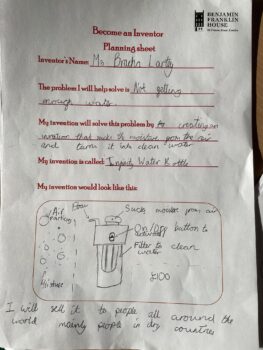 BENJAMIN
FRANKLIN
HOUSE
Become an Inventor
Planning sheet
Inventor's Name: Ms
The problem I will help solve is Not getting
enough water
My invention will solve this problem by creating an
invention that sucks the moisture from the air
and turns it into clean water
My invention is called: Water Bottle
My invention would look like this:
Air
Sucks moister from air
On/Off button to
Filter to clean
water
£100
I will sell it to people all around the
world mainly people in dry countries